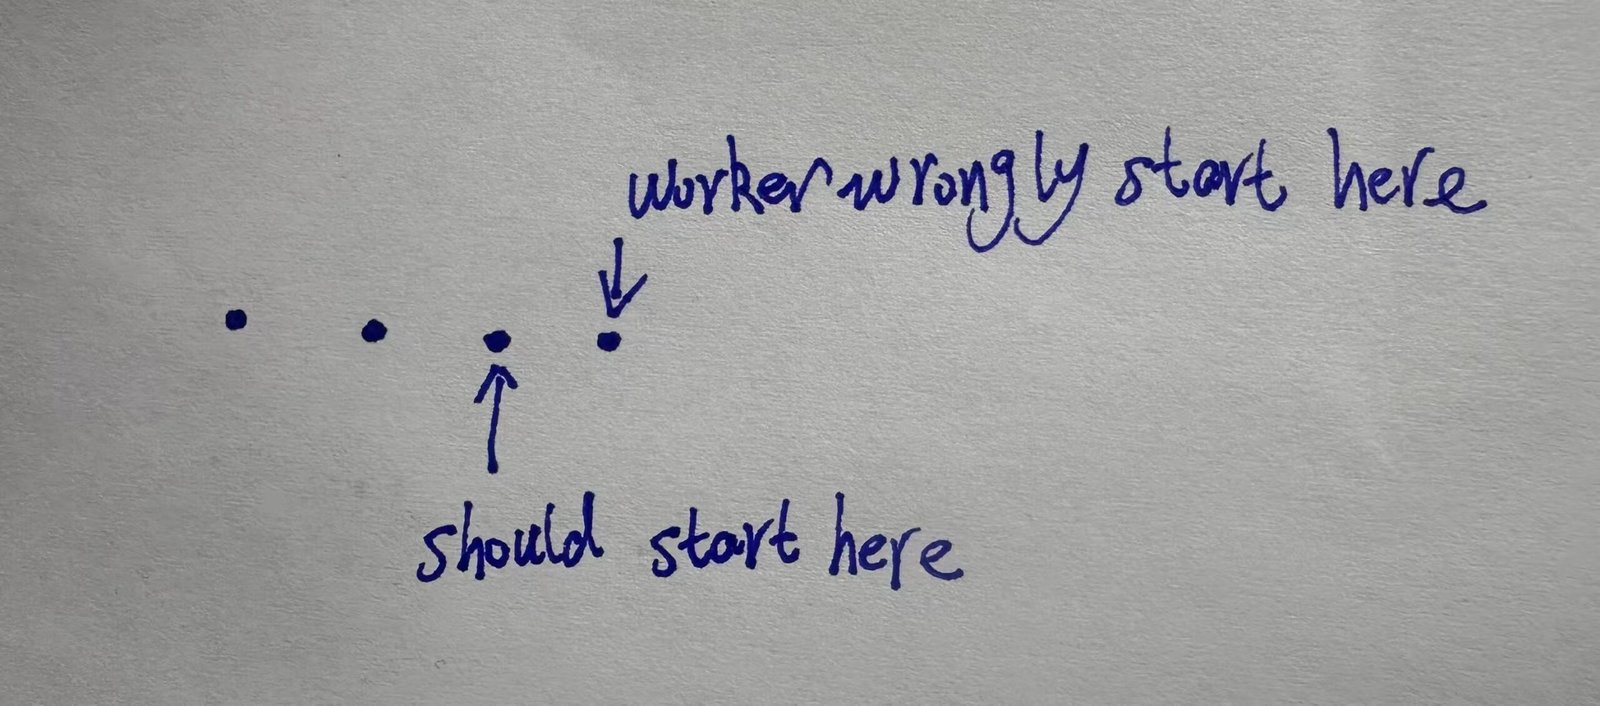 worker wrongly start here
should start here